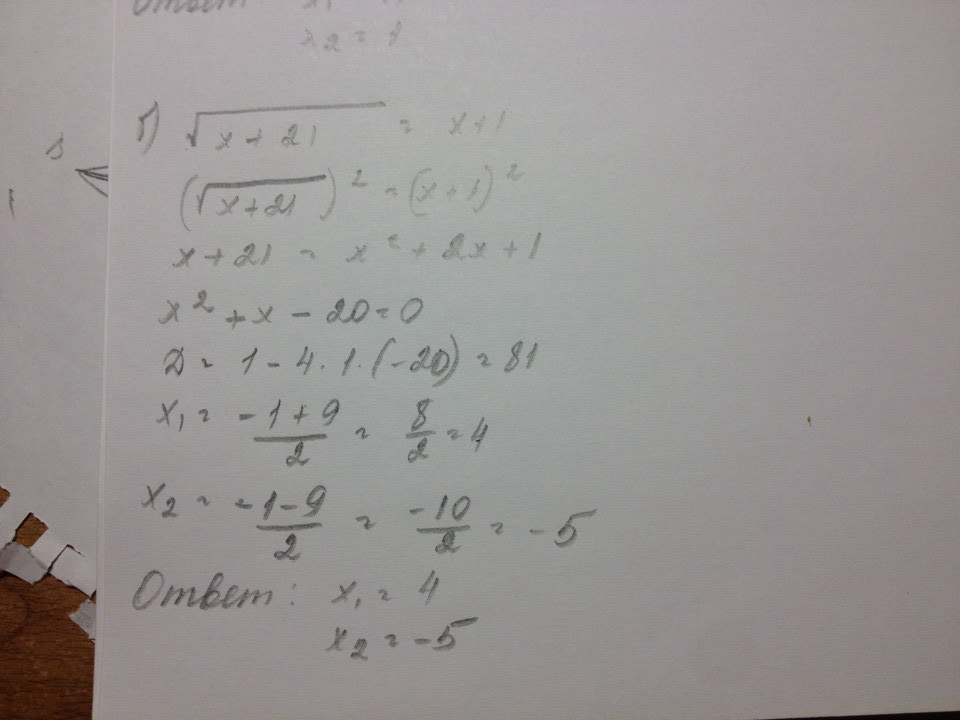 Ответ:
x₂ = 1
б) √(x + 21) = x+1
(√(x+21))² = (x+1)²
x+21 = x² + 2x+1
x² + x - 20 = 0
D = 1 - 4 · 1 · (-20) = 81
x₁ = (-1+9)/2 = 8/2 = 4
x₂ = (-1-9)/2 = -10/2 = -5
Ответ: x₁ = 4
x₂ = -5